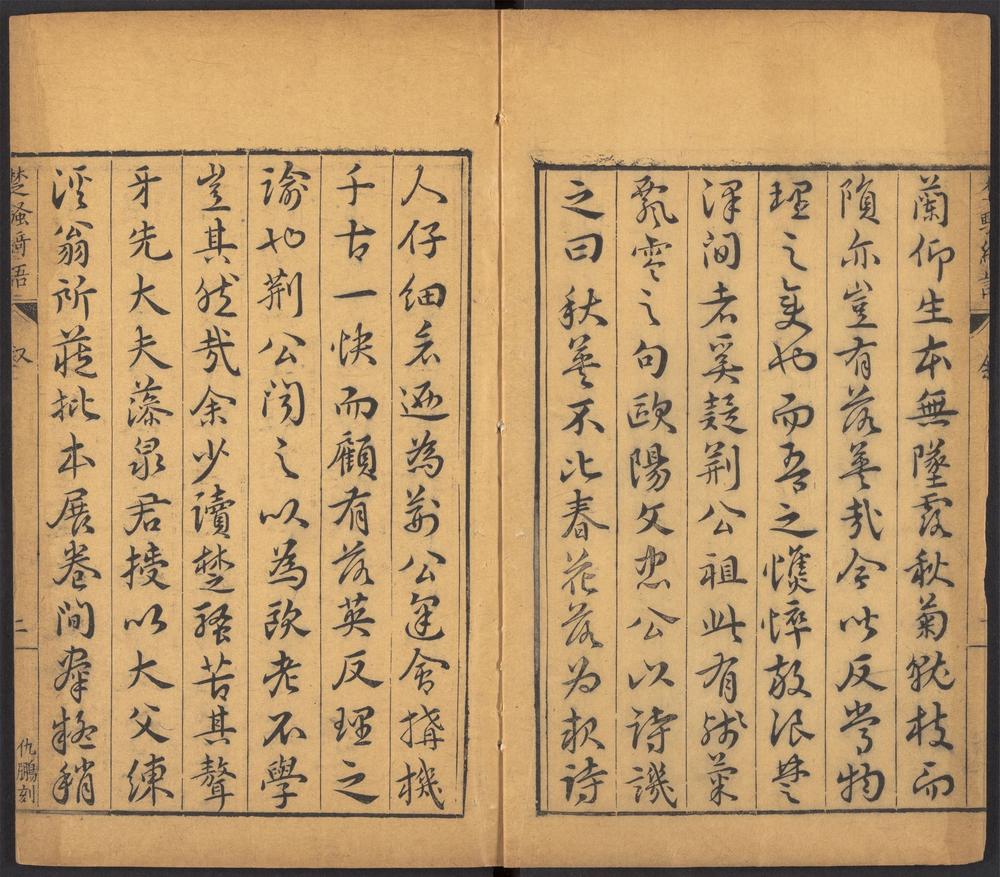 蘭仰生本無墜露秋菊就枝而
隕亦豈有落英哉今以反常物
理之変也而吾之憔悴放浪楚
澤間者奚疑荊公祖此有殘菊
飄零之句歐陽文忠公以詩譏
之曰秋英不比春花落为報詩
人仔細看遜為荊公逢會搆機
千古一快而顧有落英反理之
諭也荊公闻之以為歐老不學
豈其然哉余少讀楚騷苦其聱
牙先大夫藻泉君授以大父練
溪翁所蔵批本展卷間羣疑稍
楚騷綺語
叙
二
仇鵬刻